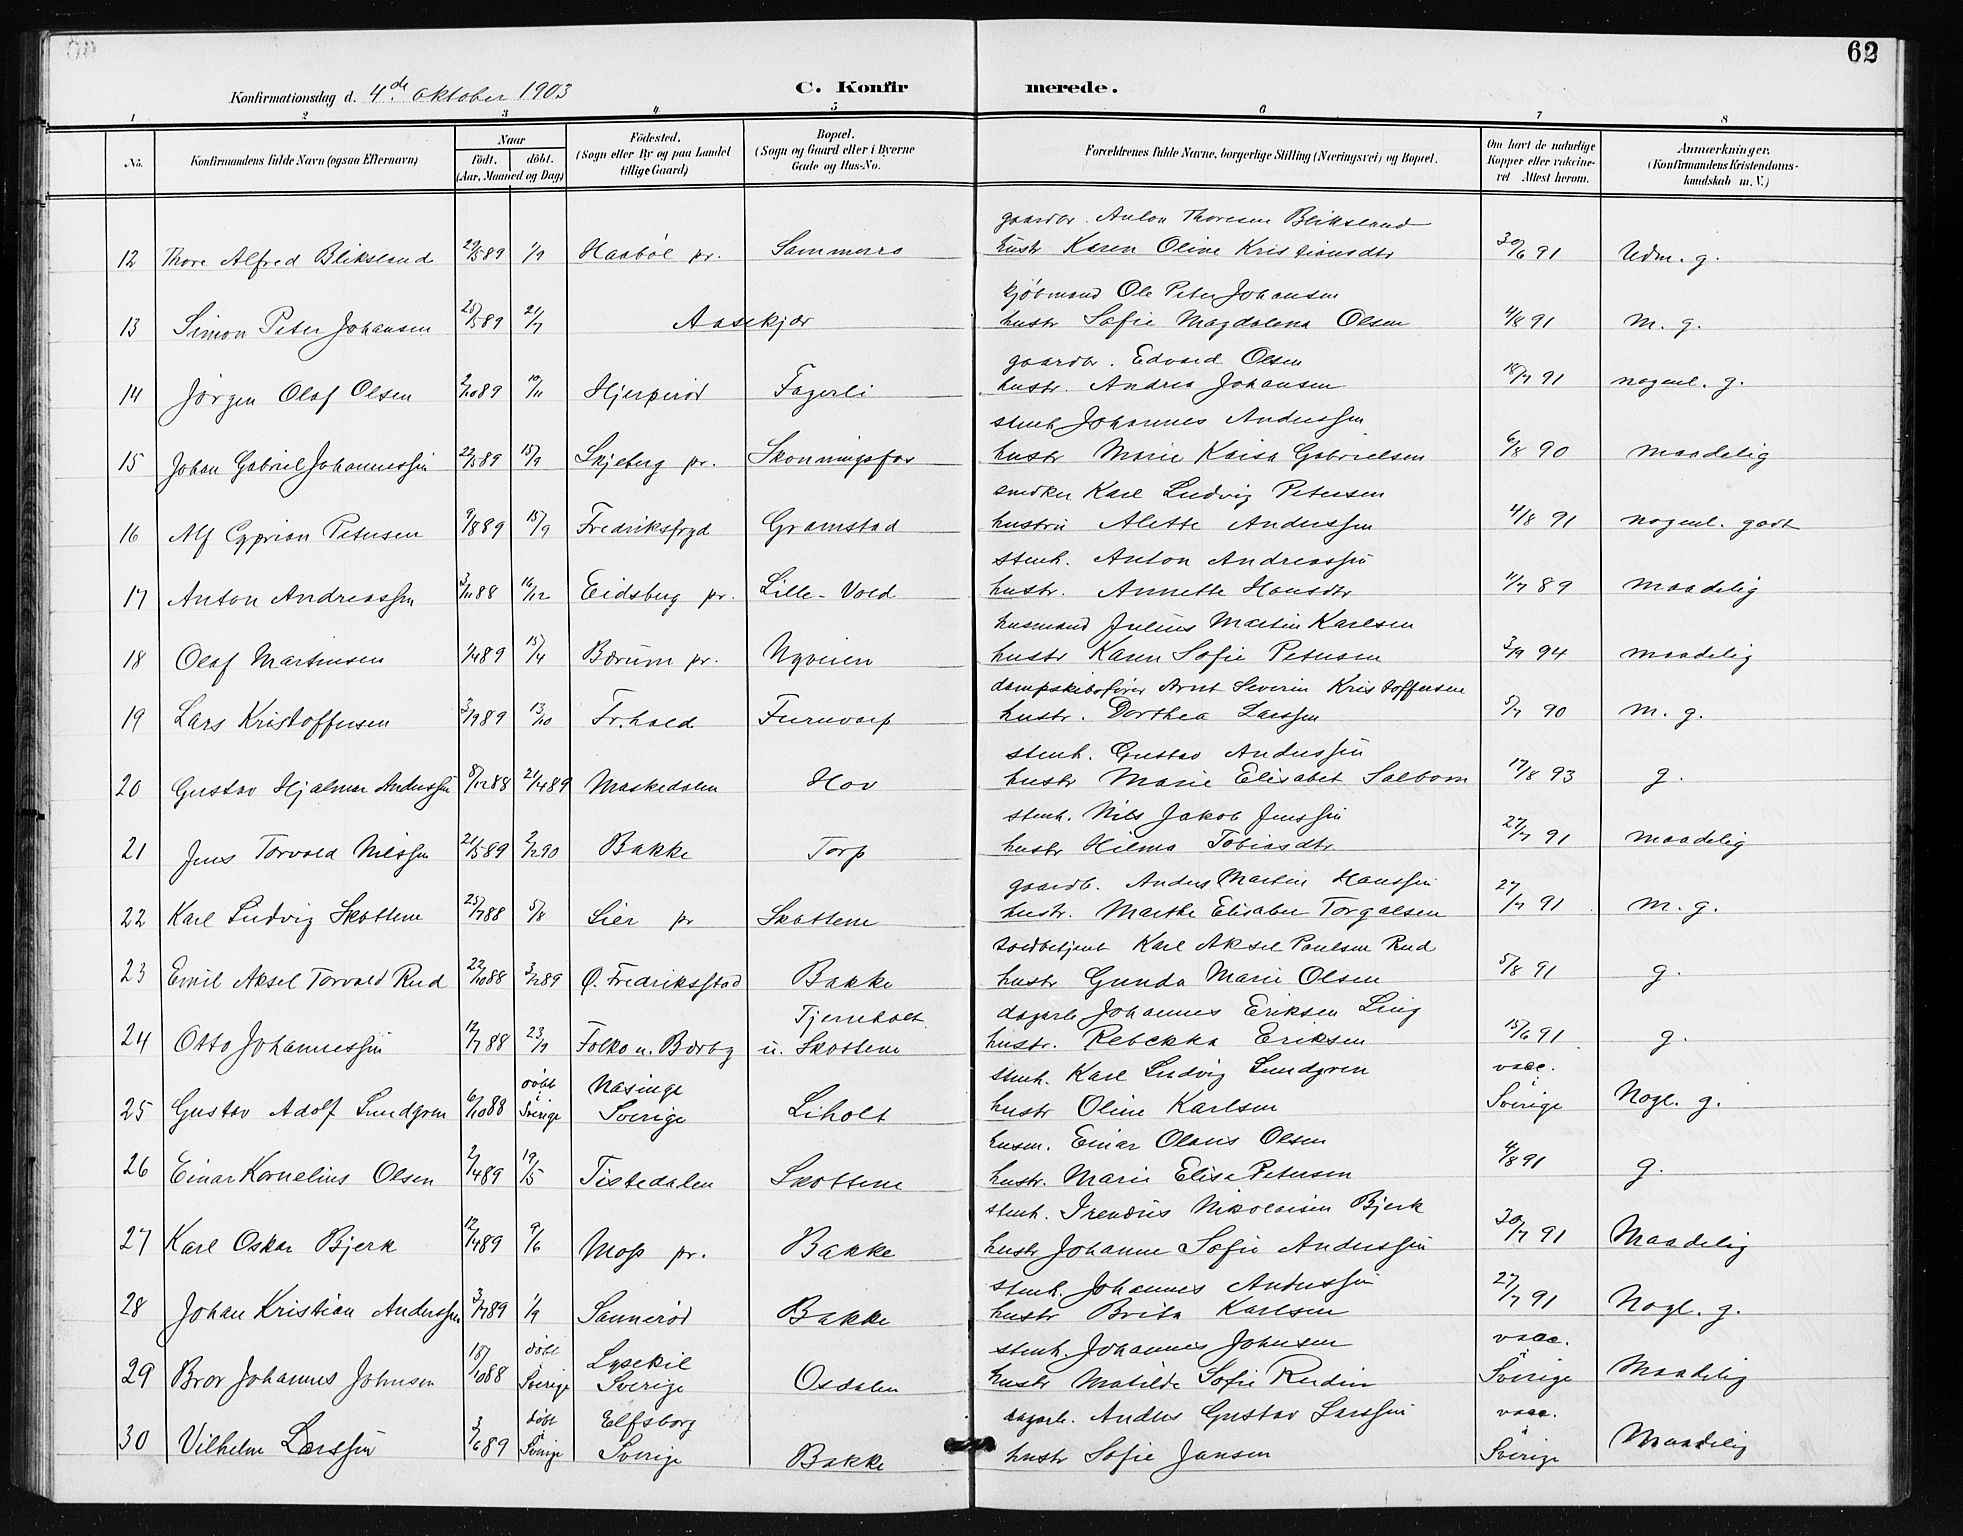 62
Konfirmationsdag d. 4de Oktober 1903 C. Konfirmerede.
1 2 3 4 5 6 7 8
No. Konfirmandens fulde Navn (ogsaa Efternavn) Naar født. døbt. (Aar, Maaned og Dag) Fødested. (Sogn eller By og paa Landet tillige Gaard) Bopæl. (Sogn og Gaard eller i Byerne Gade og Hus-No. Forældrenes fulde Navne, borgerlige Stilling (Næringsvei) og Bopæl. Om havt de naturlige Kopper eller vaccineret Attest herom. Anmærkninger. (Konfirmandens Kristendomskundskab m. V.)
gaardbr. Anton Thoresen Bliksland
12 Thore Alfred Bliksland 29/5 89 1/9 Haabøl pr. Sammerro hustr Karen Oline Kristiansdtr 30/6 91 Udm. g.
kjøbmand Ole Peter Johansen
13 Simon Peter Johansen 20/5 89 21/7 Aasekjær hustr Sofie Magdalena Olsen 4/8 91 M. g.
gaardbr. Edvard Olsen
14 Jørgen Olaf Olsen 2/10 89 10/11 Hjerperød Fagerli hustr. Andrea Johansen 18/7 91 nogenl. g.
stenh Johannes Anderssen
15 Johan Gabriel Johannessen 22/5 89 15/9 Skjeberg pr. Skonningsfos hustr Marie Kaisa Gabrielsen 6/8 90 maadelig
snedker Karl Ludvig Petersen
16 Alf Cyprian Petersen 9/8 89 15/9 Fredriksfryd Gramstad hustru Alette Anderssen 4/8 91 nogenl. godt
stenh. Anton Andreassen
17 Anton Andreassen 3/11 88 16/12 Eidsberg pr. Lille-Vold hustr. Annette Hansdtr 4/7 89 maadelig
husmand Julius Martin Karlsen
18 Olaf Martinsen 1/4 89 15/4 Bærum pr. Nyveien hustr Karen Sofie Petersen 3/9 94 maadelig
dampskibsfører Arnt Severin Kristoffersen
19 Lars Kristoffersen 3/9 89 13/10 Fr.hald Furuvarp hustr. Dorthea Larssen 5/7 90 M. g.
stenh. Gustav Anderssen
20 Gustav Hjalmar Anderssen 8/12 88 21/4 89 Maskedalen Hov hustr Marie Elisabet Salbom 17/8 93 g.
stenh. Nils Jakob Jenssen
21 Jens Torvald Nilssen 21/5 89 2/2 90 Bakke Torp hustr Hilma Tobiasdtr. 27/7 91 maadelig
gaardb. Anders Martin Hanssen
22 Karl Ludvig Skottene 25/7 88 5/8 Lier pr Skottene hustr. Marthe Elisabet Torgalsen 27/7 91 M. g.
toldbetjent Karl Aksel Paulsen Rud
23 Emil Aksel Torvald Rud 22/10 88 3/2 89 Ø. Fredriksstad Bakke hustr Gunda Marie Olsen 5/8 91 g.
Tjerneholt dagarb Johannes Eriksen Ling
24 Otto Johannessen 12/7 88 23/9 Folko n. Bærby u. Skottene hustr. Rebekka Eriksen 15/6 91 g.
døbt Nasinge stenh. Karl Ludvig Lundgren vacc.
25 Gustav Adolf Lundgren 6/10 88 Sverige Sverige Liholt hustr Oline Karlsen Sverige Nogl. g.
husm. Einar Olaus Olsen
26 Einar Kornelius Olsen 2/4 89 19/5 Tistedalen Skottene hustr. Marie Elise Petersen 4/8 91 g.
stenh. Irenæus Nikolaisen Bjerk
27 Karl Oskar Bjerk 12/4 89 9/6 Moss pr. Bakke hustr Johanne Sofie Anderssen 30/7 91 Maadelig
stenh. Johannes Anderssen
28 Johan Kristian Anderssen 3/7 89 1/9 Sannerød Bakke hustr Brita Karlsen 27/7 91 Nogl. g.
døbt Lysekil stenh. Johannes Johnsen vacc.
29 Bror Johannes Johnsen 18/10 88 Sverige Sverige Osdalen hustr Matilde Sofie Rudin Sverige Maadelig
døbt Elfsborg dagarb. Anders Gustav Larssen vacc.
30 Vilhelm Larssen 3/6 89 Sverige Sverige Bakke hustr Sofie Jansen Sverige Maadelig